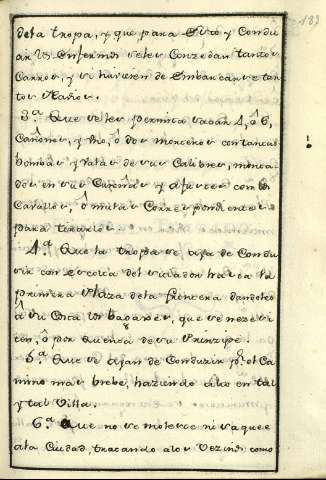 183
dela tropa, y que para esto y Condu
cir los enfermos seles Conzedan tantos
Carros, y si huviesen de Embarcarse tan
tos Navios.
3.ª Que seles permita sacar 4, ô 6,
Cañones, y uno, ô dos morteros con tantas
bombas y valas de sus Calibres, monta
dos en sus Cureñas y Afustes con los
Cavallos, ô mulas Correspondientes
para tirarlos.
4.ª Que la tropa se aya de Condu
cir con escolta del sitiador hasta la
primera Plaza dela frontera dandoles
â su Costa los bagages, que se nezesi
ten, ô por quenta de su Principe.
5.ª Que se ayan de Conduzir p.r el Ca
mino mas brebe, haziendo alto en tal
y tal Villa.
6.ª Que no se moleste ni saquee
ala Ciudad, tratando alos Vezinos como